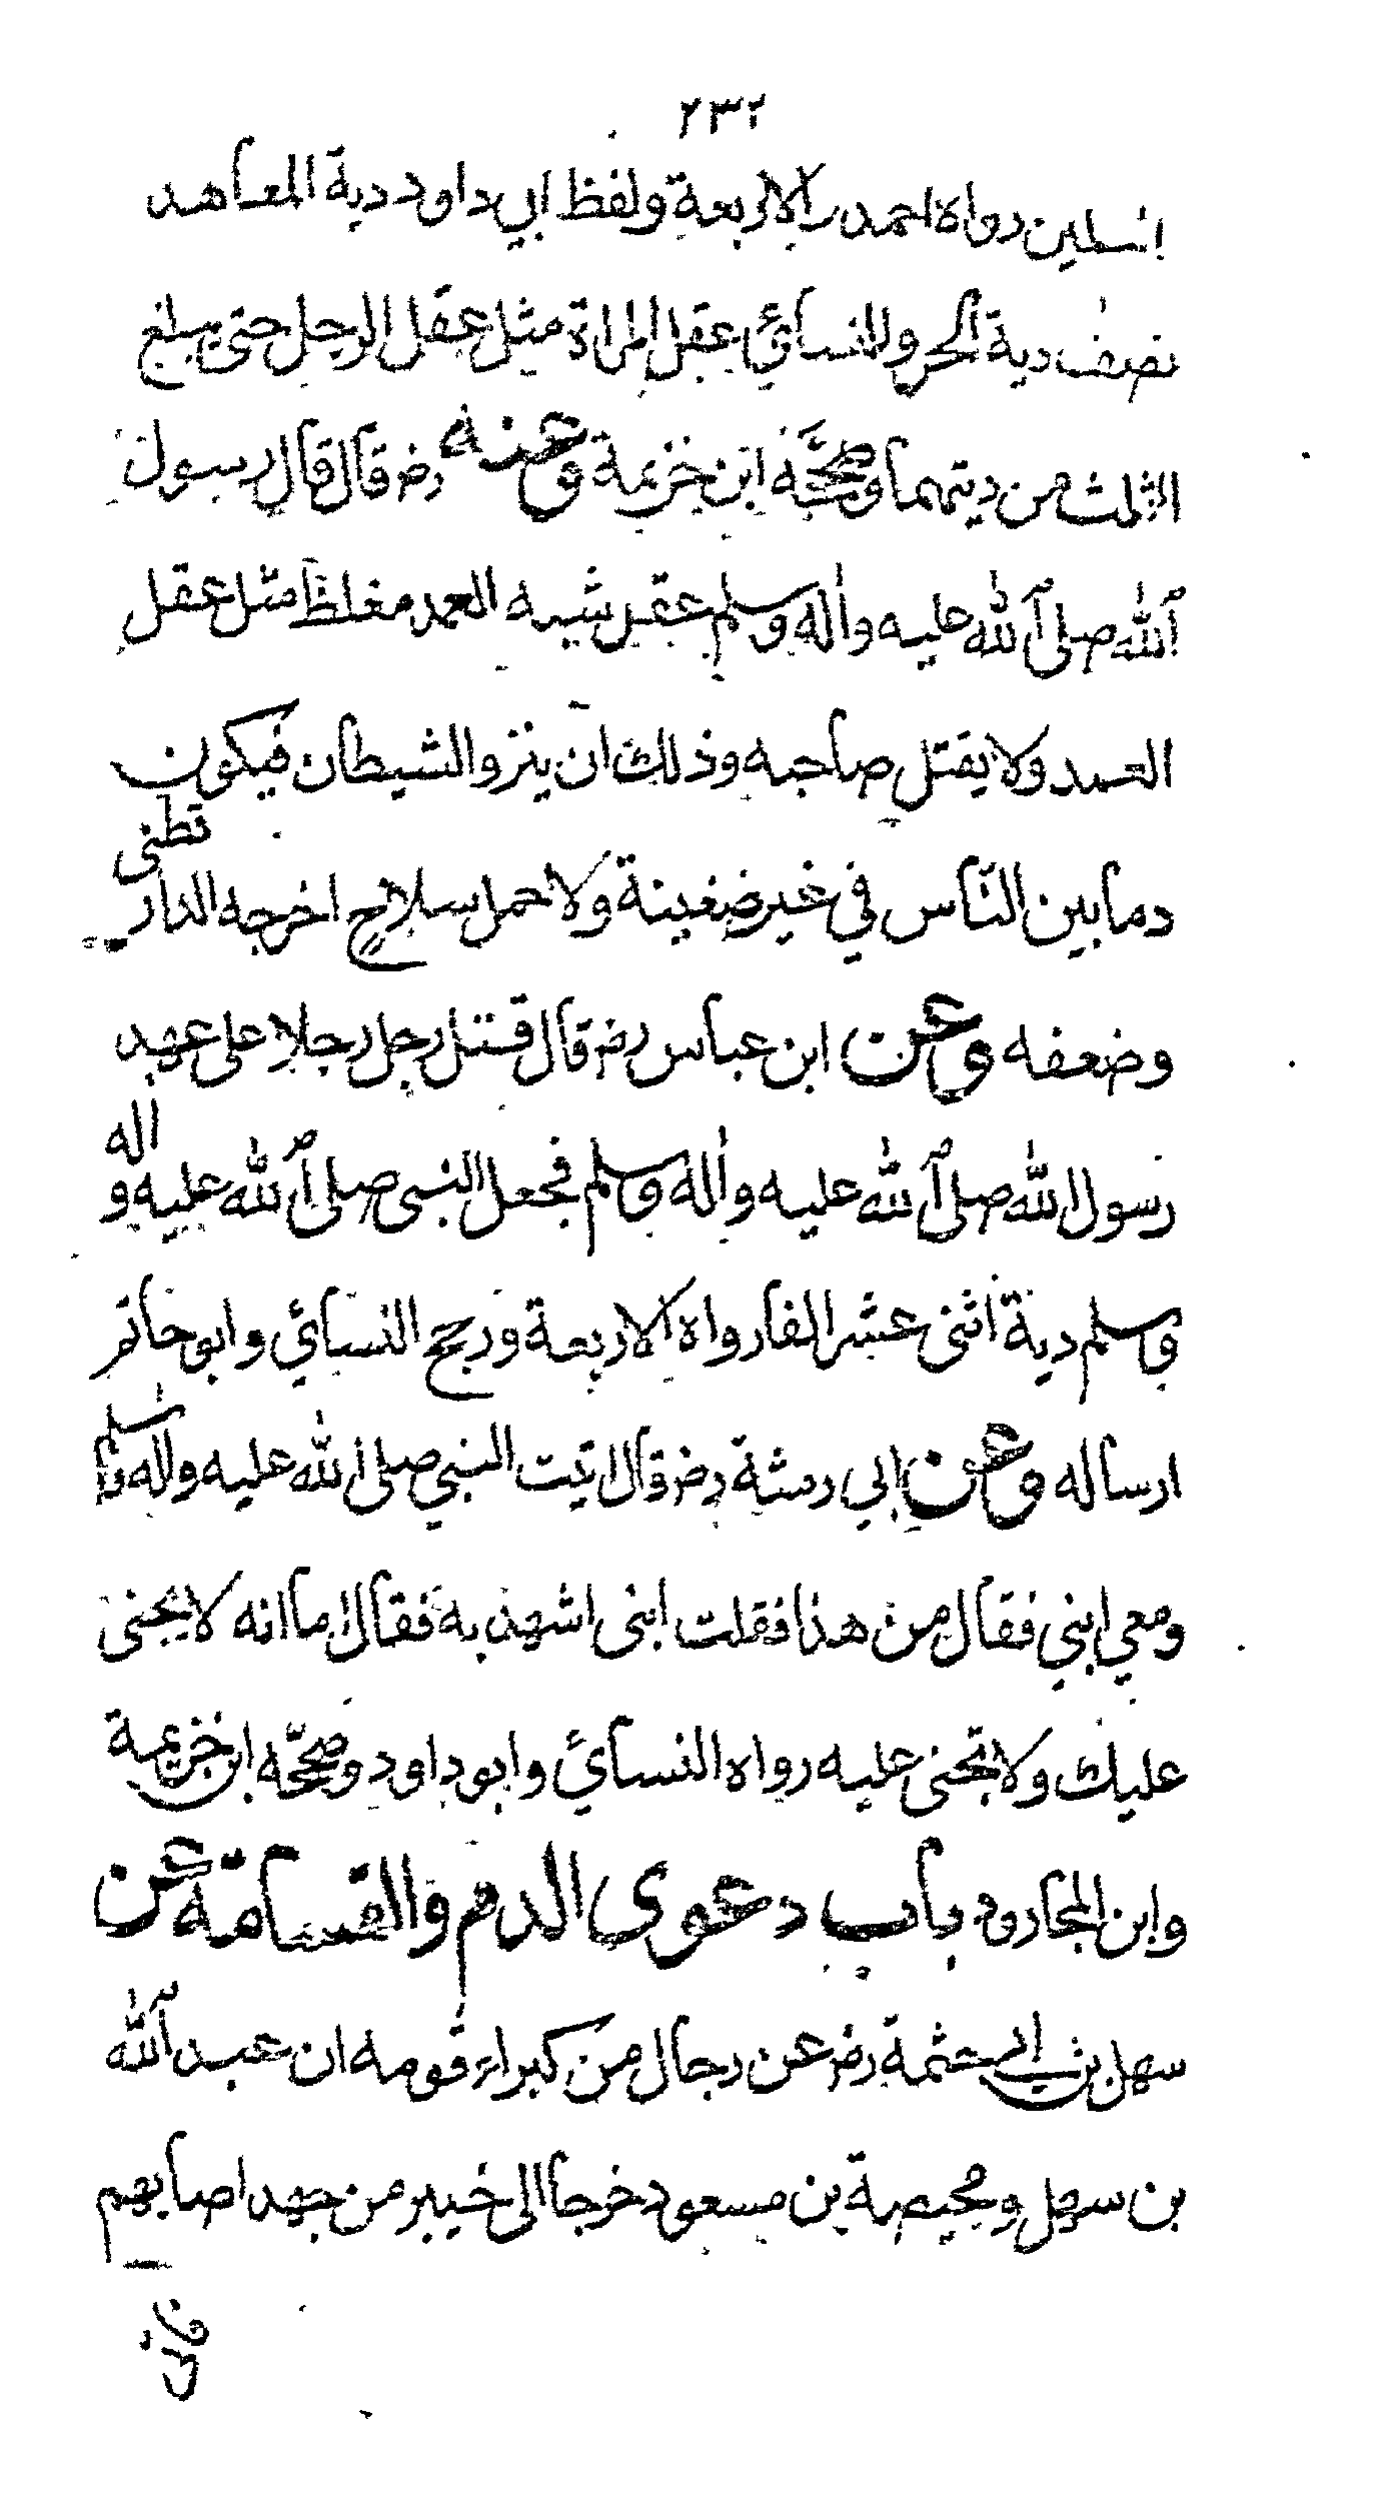 ٢٣٢
المسلمين رواه احمد والاربعة ولفظ ابي داود دية المعاهد
نصف دية الحر وللنسائي عقل المراة مثل عقل الرجل حتى يبلغ
الثلث من ديتهما وصححه ابن خزيمة وعنه رضر قال قال رسول
الله صلى الله عليه واله وسلم عقل شبه العمد مغلظ مثل عقل
العمد ولا يقتل صاحبه وذلك ان ينزو الشيطان فيكون
دما بين الناس في غير ضغينة ولا حمل سلاح اخرجه الدار
قطنى
وضعفه وعن ابن عباس رضر قال قتل رجل رجلا على عهد
رسول الله صلى الله عليه واله وسلم فجعل النبى صلى الله عليه و
اله
وسلم دية اثنى عشر الفا رواه الاربعة ورجح النسائي وابو حاتم
ارساله وعن ابي رمثة رضر قال اتيت النبي صلى الله عليه واله وسلم
ومعي ابني فقال من هذا فقلت ابنى اشهد به فقال اما انه لا يجنى
عليك ولا تجنى عليه رواه النسائي وابو داود وصححه ابن خزيمة
وابن الجارود باب دعوى الدم والقسامة عن
سهل بن ابي حثمة رضر عن رجال من كبراء قومه ان عبد الله
بن سهل ومحيصة بن مسعود خرجا الى خيبر من جهد اصابهم